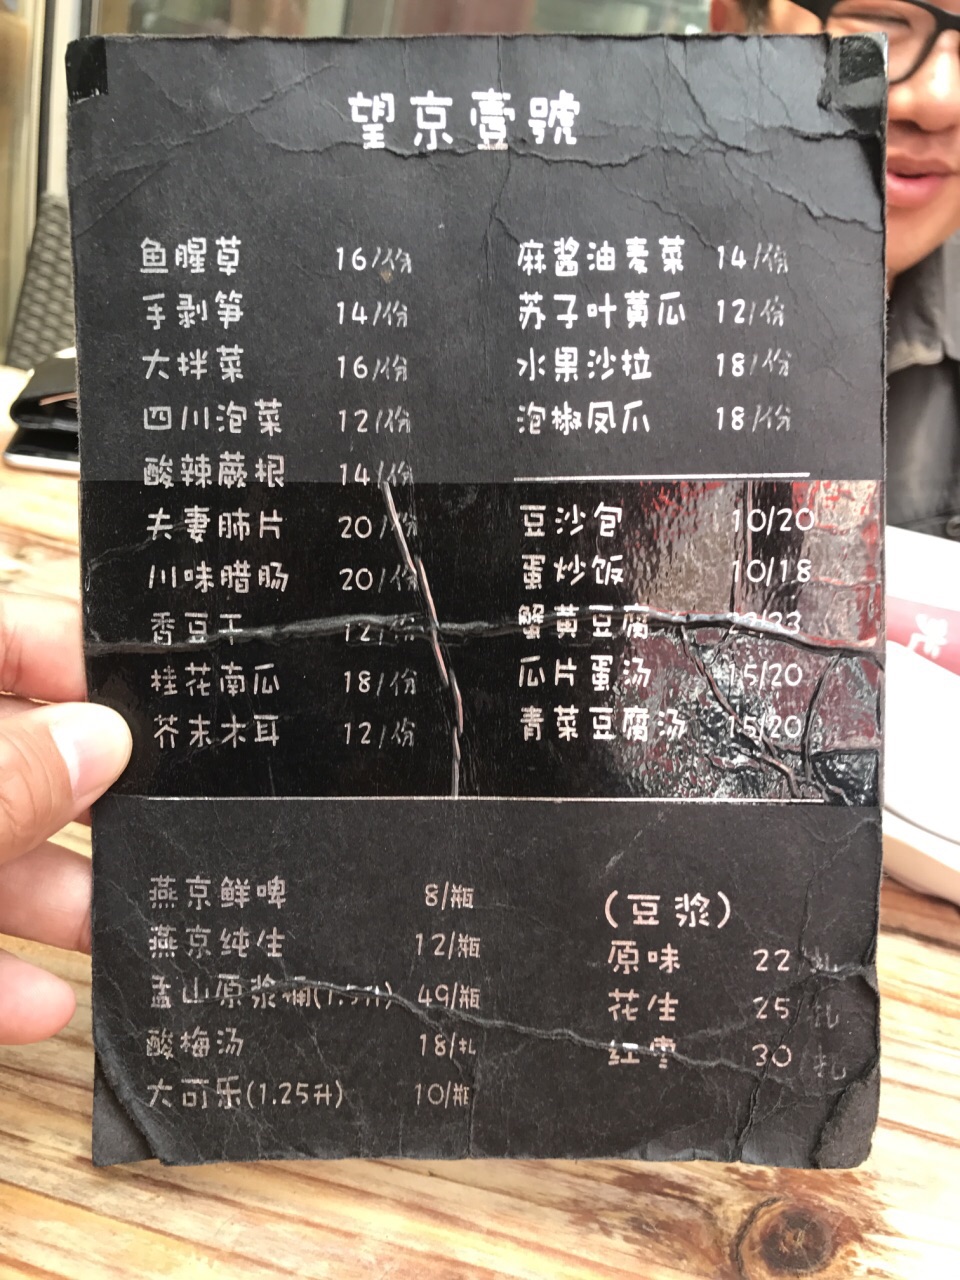 望京壹號
鱼腥草 16/份
手剥笋 14/份
大拌菜 16/份
四川泡菜 12/份
酸辣蕨根 14/份
夫妻肺片 20/份
川味腊肠 20/份
香豆干 12/份
桂花南瓜 18/份
芥末木耳 12/份
麻酱油麦菜 14/份
苏子叶黄瓜 12/份
水果沙拉 18/份
泡椒凤爪 18/份
豆沙包 10/20
蛋炒饭 10/18
蟹黄豆腐
瓜片蛋汤 15/20
青菜豆腐汤 15/20
燕京鲜啤 8/瓶
燕京纯生 12/瓶
孟山原浆桶(1.5升) 49/瓶
酸梅汤 18/扎
大可乐(1.25升) 10/瓶
(豆浆)
原味 22 扎
花生 25 扎
红雪 30 扎